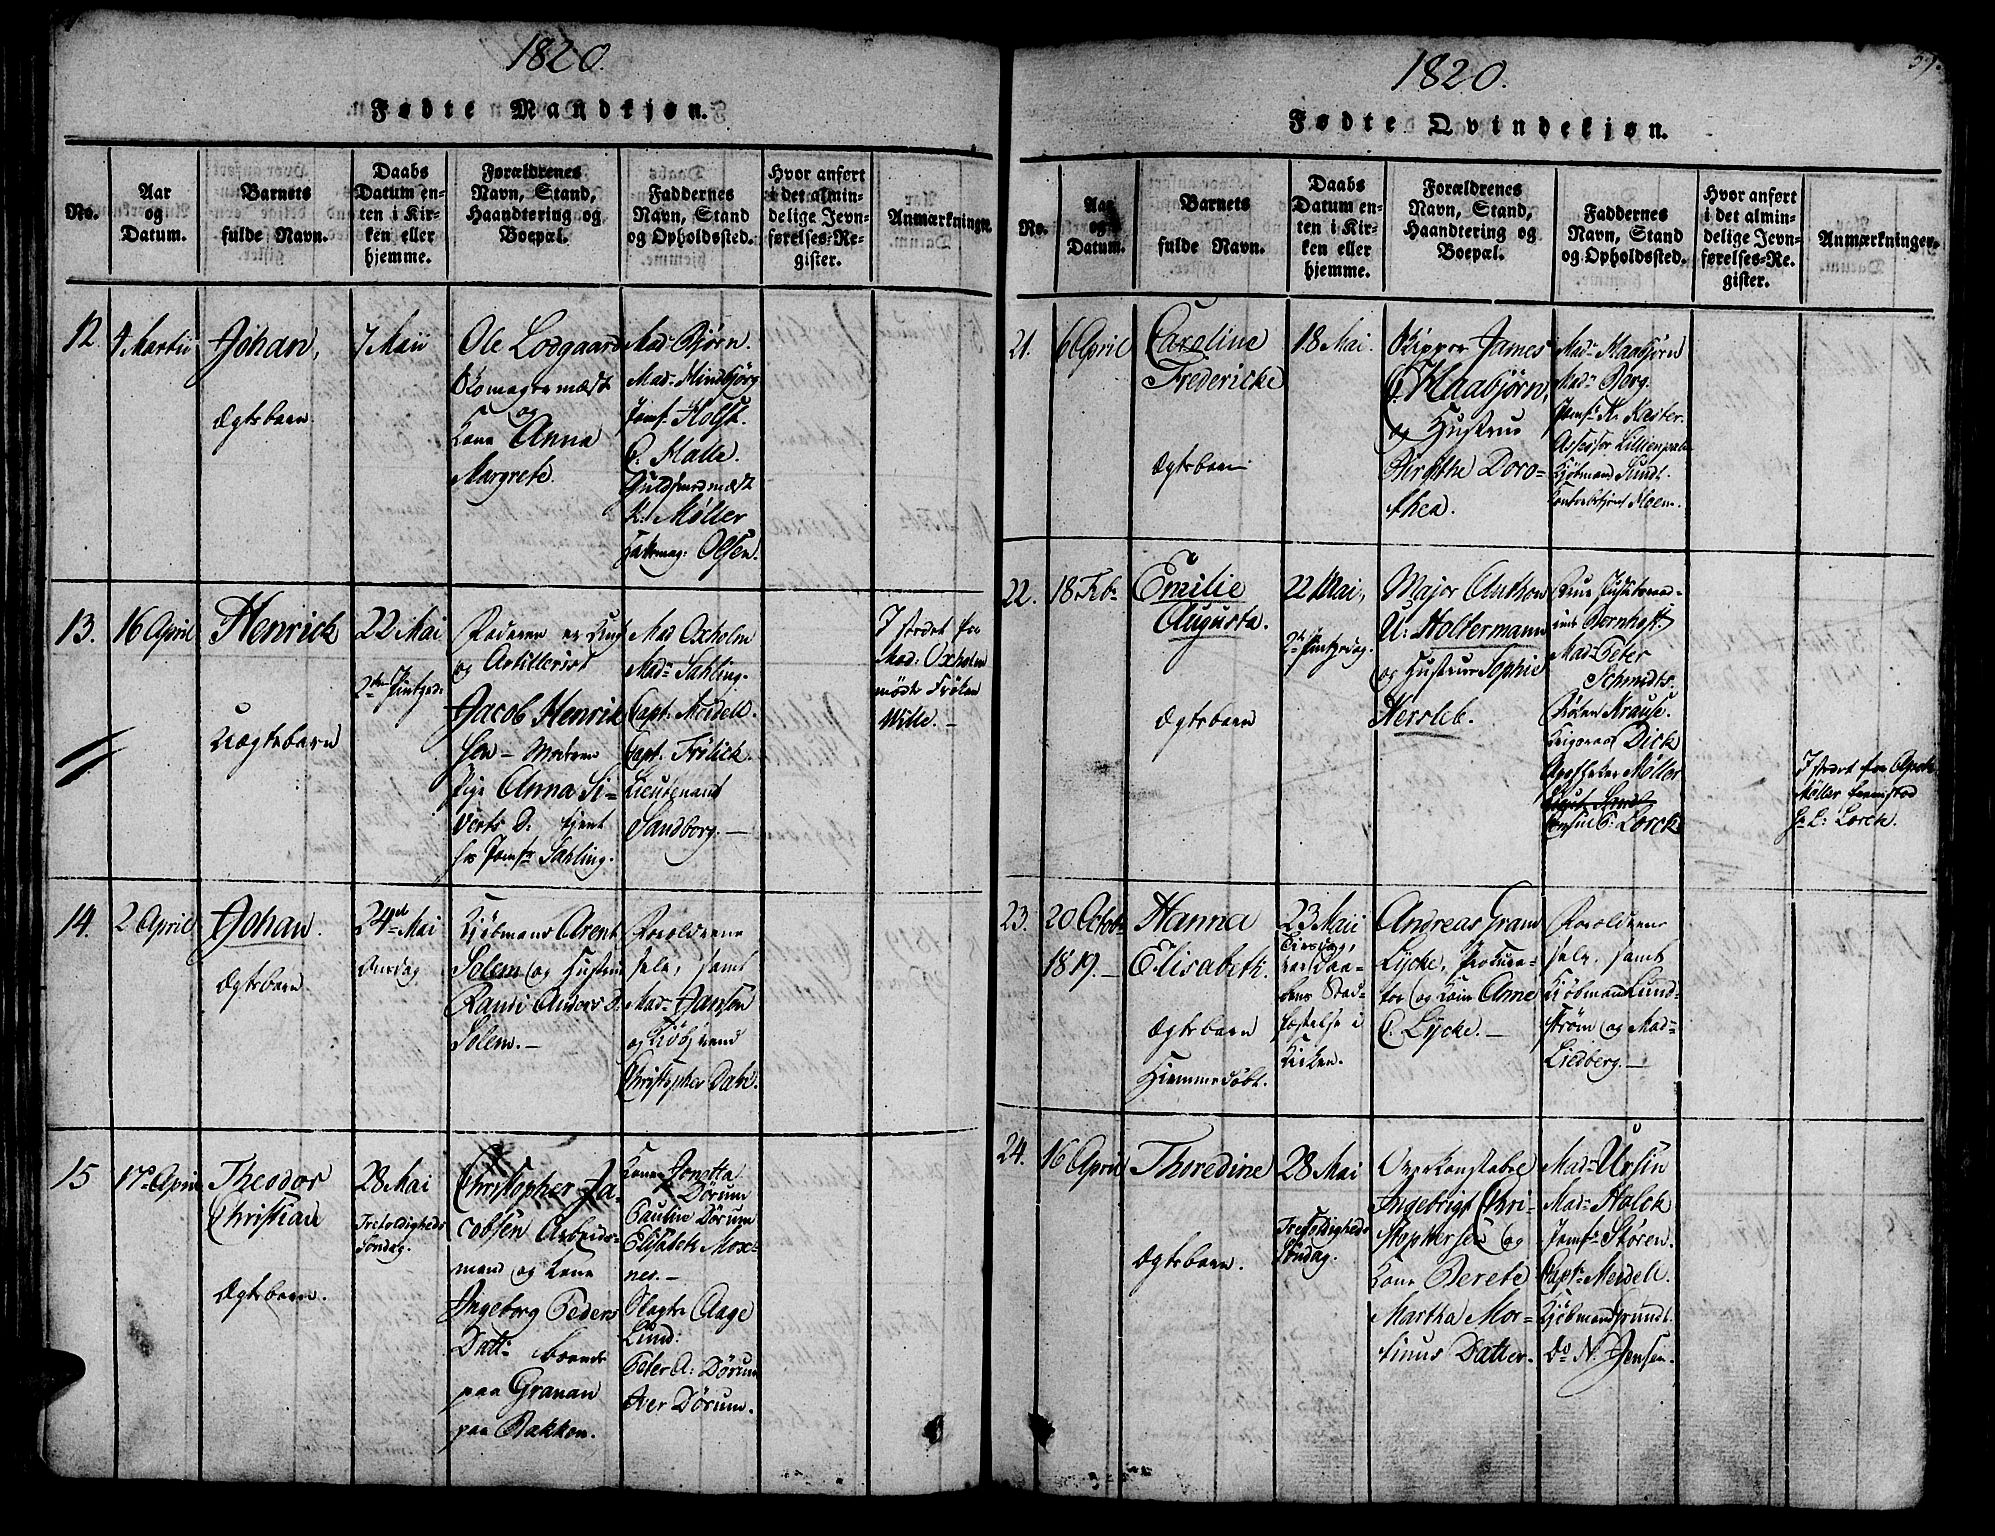 1820.
Fødte Mandkjøn.
No.
Aar
og
Datum.
Barnets
fulde Navn.
Daabs
Datum en-
ten i Kir-
ken eller
hjemme.
Forældrenes
Navn, Stand,
Haandtering og
Boepæl.
Faddernes
Navn, Stand
og Opholdssted.
Hvor anført
i det almin-
delige Jevn-
førelses-Re-
gister.
Anmærkninger.
12.
4 Martii
Johan,
Ægtebarn.
7 Maii
Ole Lodgaard
og
Kone Anna
Margrete.
Mad: Bjørn.
Mad: Mindbjørg
Jomf: Holst.
C. Halle.
K: Møller
Olsen.
13.
16 April
Henrick
Uægtebarn
22 Mai
2den Pintsed:
Faderen er Und
og Artillerist
Jacob Henrik
Sen - Moderen
Pige Anna Si-
verts D: tjent
hos Jomfr Sahling.
Mad Oxholm
Mad: Sahling.
Capt: Meidell.
Capt: Frölich.
Lieutenant
Sandborg. —
I stedet for
Mad: Oxholm
mödte Fröken
Wille. —
14.
2 April
Johan.
Ægtebarn.
24de Mai
Onsdag
Kjöbmand Arent
Solem og Hustrue
Randi Anders D.
Solem. —
Forældrene
selv, samt
Mad: Jansen
og
Christopher Dahl.
15
17de April
Theodor
Christian
Ægtebarn.
28 Mai
Trefoldigheds
Söndag.
Christopher Ja-
cobsen Arbeids-
mand og Kone
Ingeborg Peders
Datt: boende
paa Granan
paa Bakken.
Kone Jonetta
Dørum
Pauline Dørum
Elisabeth Mox-
nes. —
Slagter Aage
Lind:
Peter A: Dørum
Iver Dørum.
1820.
57.
Fødte Qvindekjøn.
No.
Aar
og
Datum.
Barnets
fulde Navn.
Daabs
Datum en-
ten i Kir-
ken eller
hjemme.
Forældrenes
Navn, Stand,
Haandtering og
Boepæl.
Faddernes
Navn, Stand
og Opholdssted.
Hvor anført
i det almin-
delige Jevn-
førelses-Re-
gister.
Anmærkninger.
21.
6 April
Caroline
Fredericke
Ægtebarn
18 Mai.
Skipper James
C. Maabjørn,
og Hustrue
Birgithe Doro-
thea.
Mad: Maabjørn
Mad: Borg.
Jomfr K. Kaster.
Assessor Lillienpalm
Kjöbmand Lundt.
Floem.
22.
18 Feb:
Emilie
Augusta.
Ægtebarn
22 Mai,
2den Pintsedag.
Major Anthon
U: Holtermann
og Hustrue Sophie
Hersleb.
Frue Justitsraad-
inde Bernhoft.
Mad: Peter
Schmidts.
Fröken Krause.
Dick
Apotheker Møller
Consul C: Lorck
I stedet for Apoth:
Møller fremstod
Hr L: Lorck.
23.
20 Octob:
1819. —
Hanna
Elisabeth.
Ægtebarn
Hjemmedöbt.
23 Maii
Tirsdag,
var Daa-
bens Stad-
fæstelse i
Kirken.
Andreas Gram
Lycke, Procura-
tor og Kone Anne
C. Lycke. —
Forældrene
selv, samt
Kjöbmand Lund-
ström og Mad:
Liedberg. —
24.
16 April
Thoredine
Ægtebarn.
28 Mai
Trefoldigheds
Söndag.
Overkonstabel
Ingebrigt Chri-
stophersen og
Kone Berete
Martha Mor-
tinus Datter.
Mad: Ursin
Mad: Holck
Jomfr: Stören.
Capt: Meidell.
Kjöbmand Grundt.
Do N. Jensen.